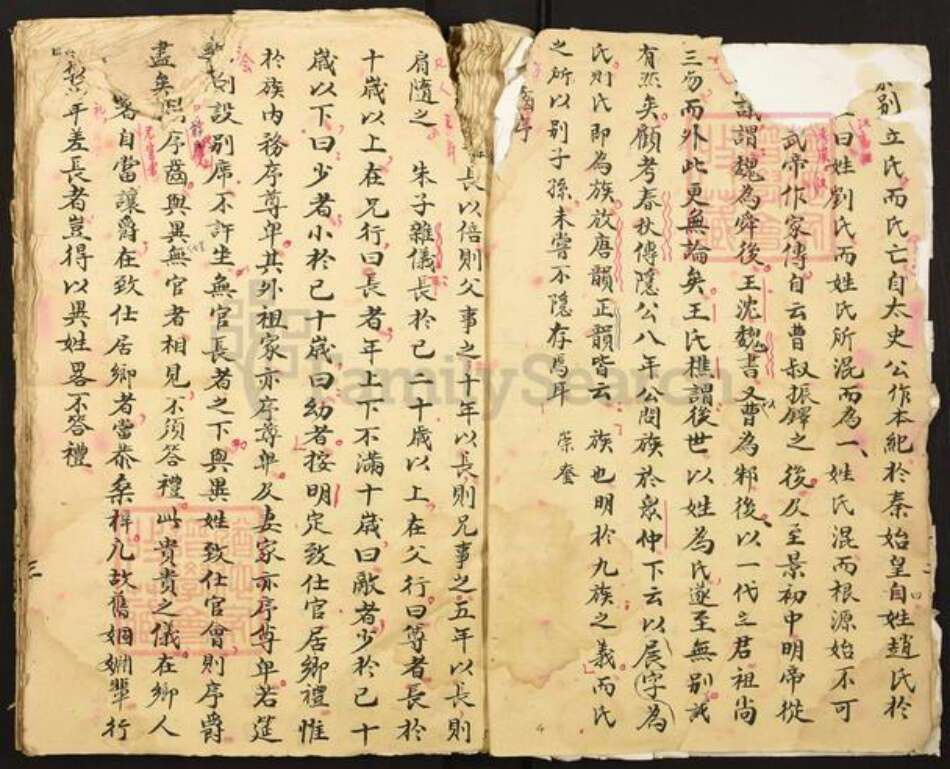 別立氏而氏亡自太史公作本紀於秦始皇自姓趙氏於
曰姓劉氏而姓氏所混而為一姓氏混而根源始不可
武帝作家傳自云曹叔振鐸之後及至景初中明帝從
議謂魏為舜後王沈魏書又曹為邾後以一代之君祖尚
三易而外此更無論矣王氏樵謂後世以姓為氏遂至無別誠
有然矣顧考春秋傳隱公八年公問族於眾仲下云以展字為
氏則氏即為族故唐韻正韻皆云族也明於九族之義而氏
之所以別子孫未嘗不隱存焉耳
長以倍則父事之十年以長則兄事之五年以長則
肩隨之 朱子雜儀長於己二十歲以上在父行曰尊者長於
十歲以上在兄行曰長者年上下不滿十歲曰敵者少於己十
歲以下曰少者小於己十歲曰幼者按明定致仕官居鄉禮惟
於族內務序尊卑其外祖家亦序尊卑及妻家亦序尊卑若筵
會則設別席不許坐無官長者之下與異姓致仕官會則序爵
盡矣序齒與異無官者相見不須答禮此貴貴之儀在鄉人
自當讓爵在致仕居鄉者當恭桑梓凡故舊姻婣輩行
年差長者豈得以異姓畧不答禮
FamilySearch